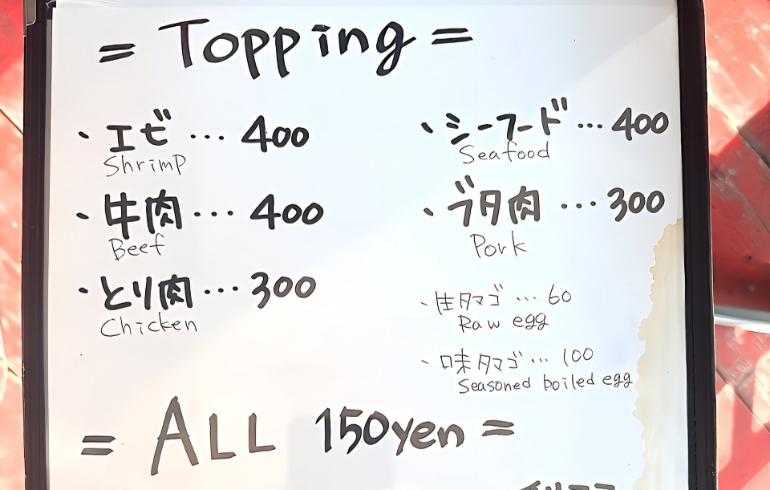 = Topping =
・エビ … 400
Shrimp
・牛肉 … 400
Beef
・とり肉 … 300
Chicken
・シーフード … 400
Seafood
・ブタ肉 … 300
Pork
・生タマゴ … 60
Raw egg
・味タマゴ … 100
Seasoned boiled egg
= ALL 150yen =